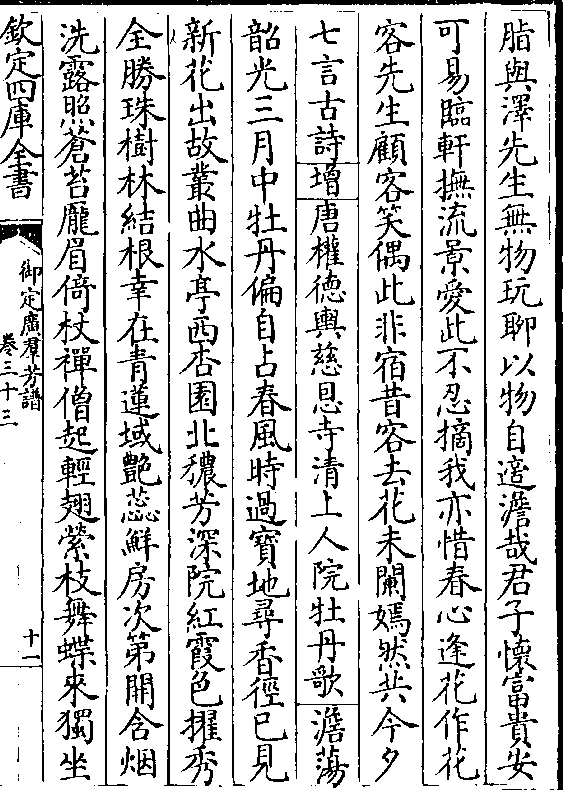 脂與澤先生無物玩聊以物自適澹哉君子懷富貴安
可易臨軒撫流景愛此不忍摘我亦惜春心逢花作花
容先生顧客笑偶此非宿昔客去花未闌嫣然共今夕
七言古詩增唐權德輿慈恩寺清上人院牡丹歌澹蕩
韶光三月中牡丹偏自占春風時過寶地尋香徑已見
新花出故叢曲水亭西杏園北穠芳深院紅霞色擢秀
全勝珠樹林結根幸在青蓮域艷蕊鮮房次第開含烟
洗露照蒼苔龐眉倚杖禪僧起輕翅縈枝舞蝶來獨坐
欽定四庫全書
御定廣羣芳譜
卷三十三
十一